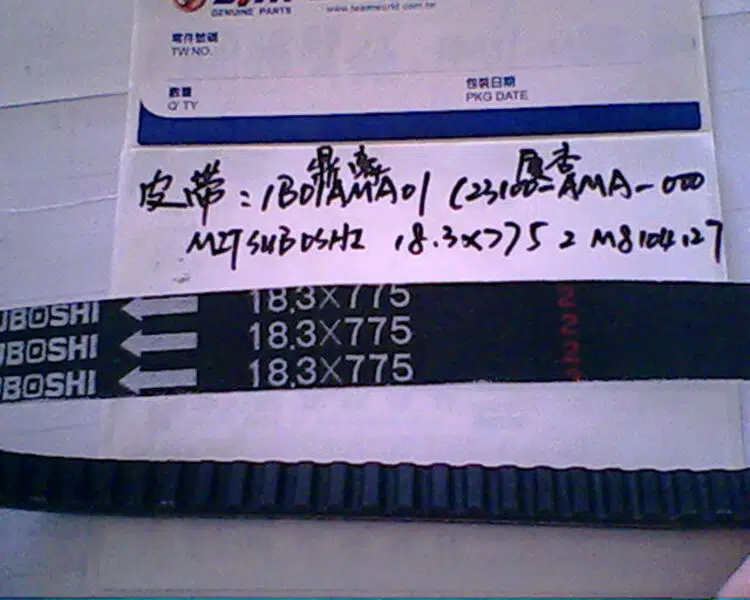 GENUINE PARTS
www.teamworld.com.tw
零件號碼
TW NO.
數量
Q'TY
包裝日期
PKG DATE
皮带:1B01AMA01 (23100-AMA-000
MITSUBOSHI 18.3x775 2 M8104127
UBOSHI 18.3×775 2
UBOSHI 18.3×775 2
UBOSHI 18.3×775 2